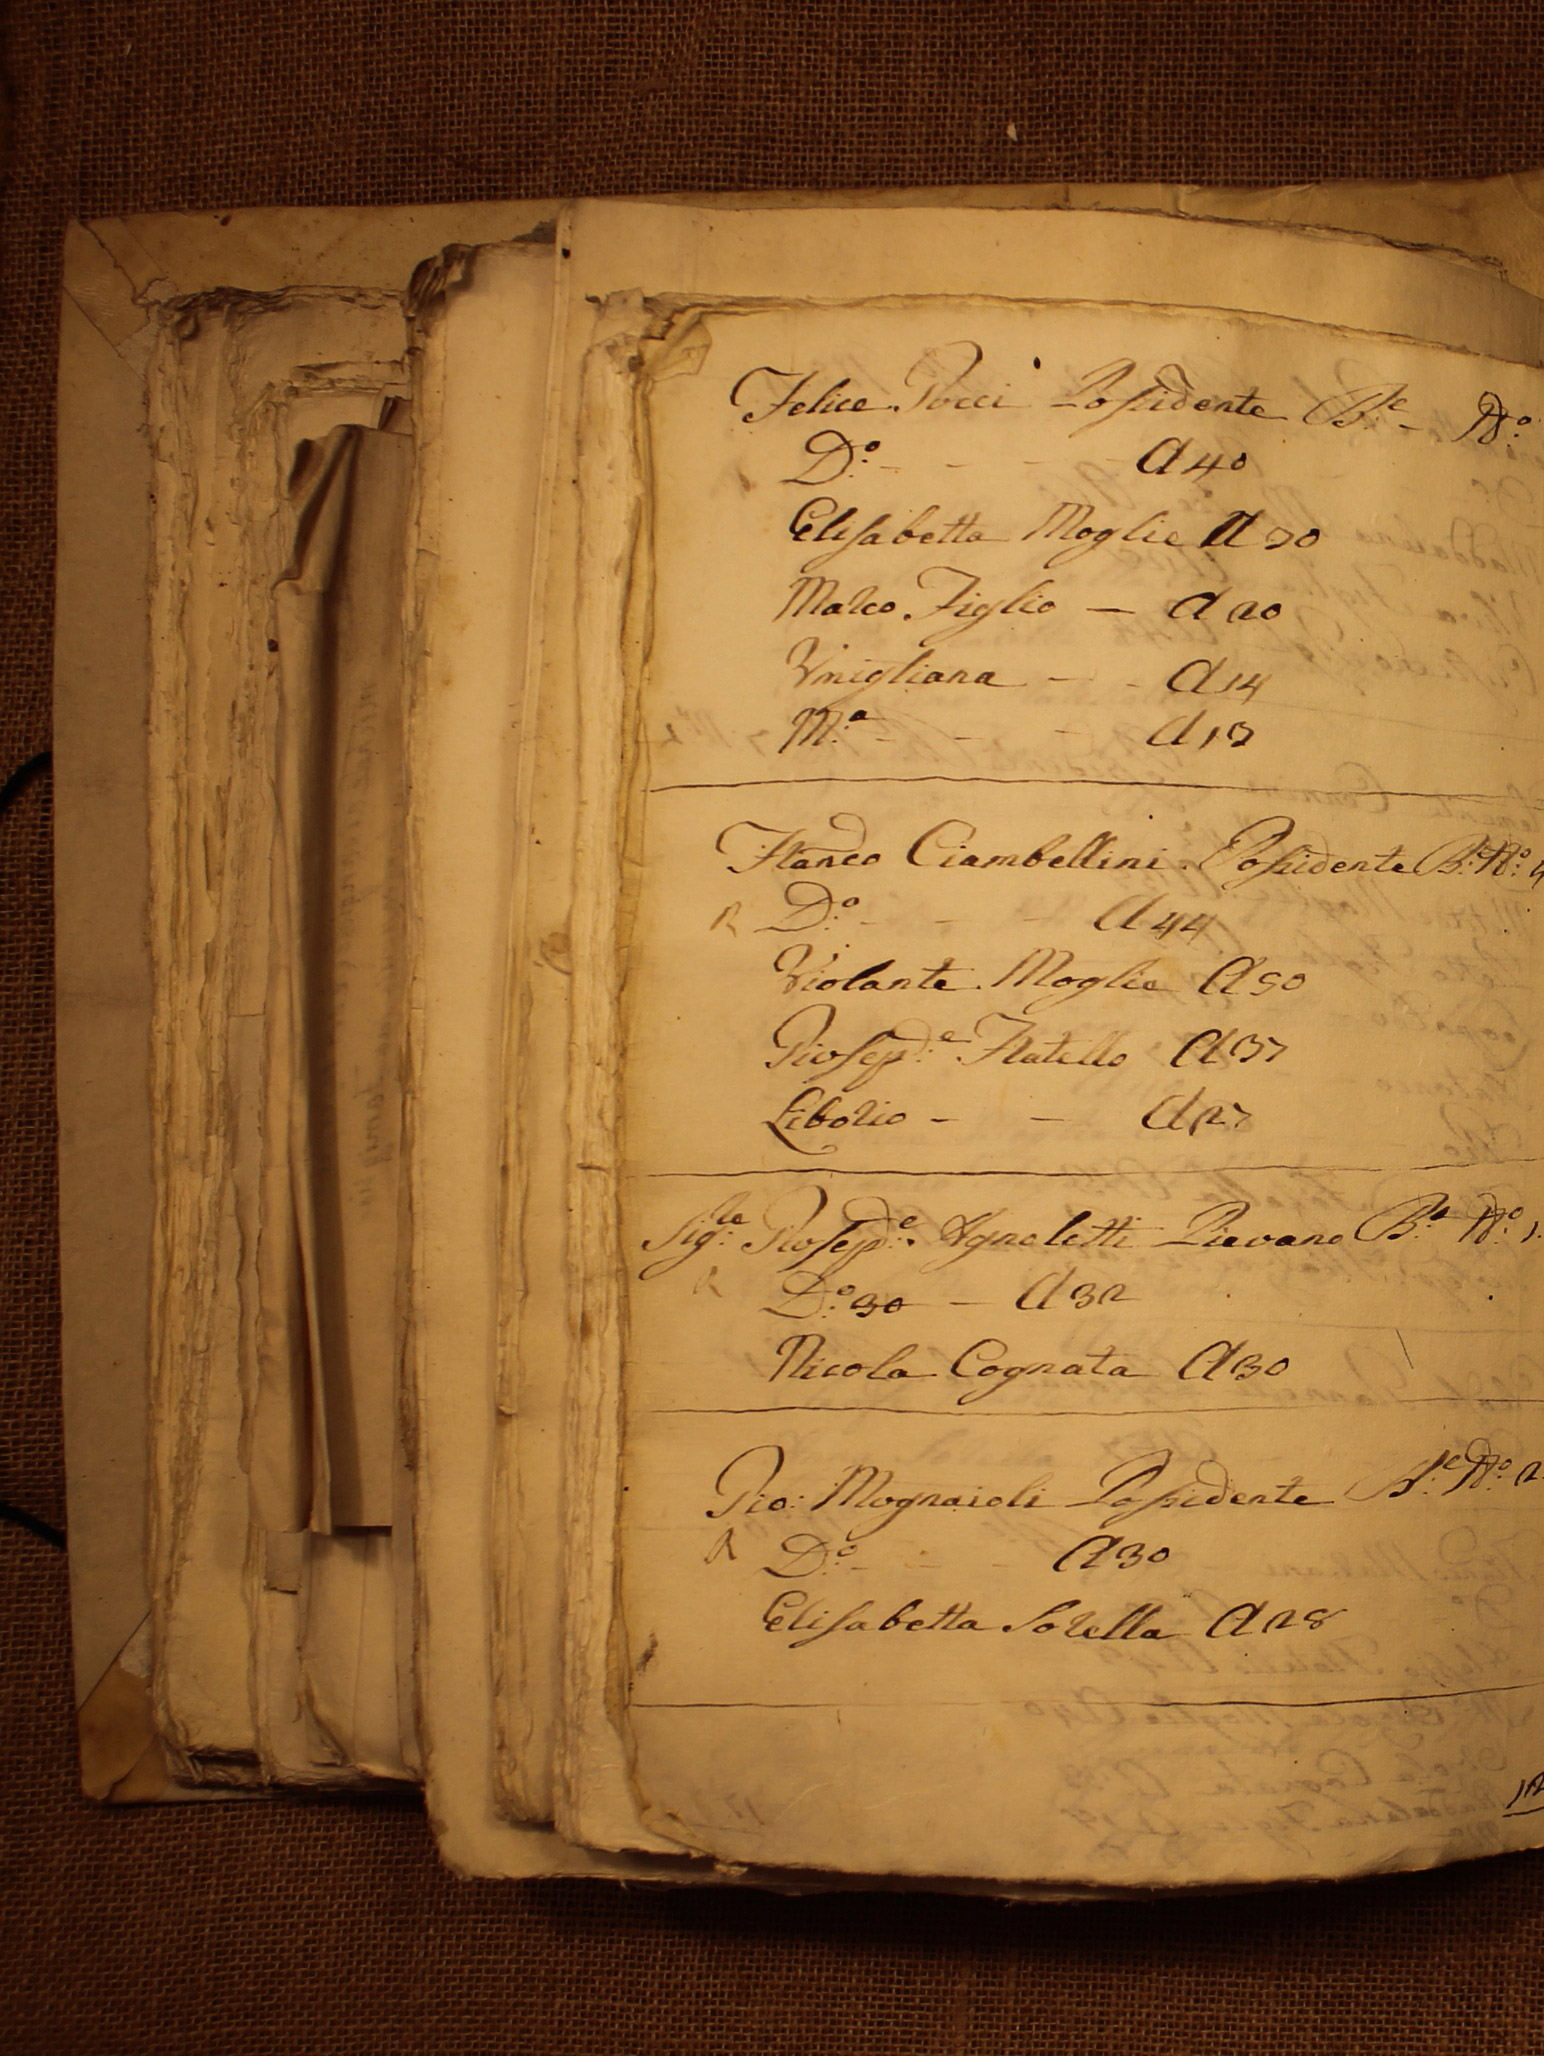 Felice Pucci Possidente B.e N.o
D.o - - - - A 40
Elisabetta Moglie A 30
Marco Figlio - A 20
Virigliana - - A 14
M.a - - - A 13
Franco Ciambellini Possidente B.e N.o 4
R D.o - - - A 44
Violante Moglie A 50
Giosep.e Fratello A 37
Liborio - - A 27
Sig.le Giosep.e Agnoletti Pievano B.e N.o 1
R D.o 30 - A 32
Nicola Cognata A 30
Gio: Mognaioli Possidente B.e N.o 2
R D.o - - - A 30
Elisabetta Sorella A 28